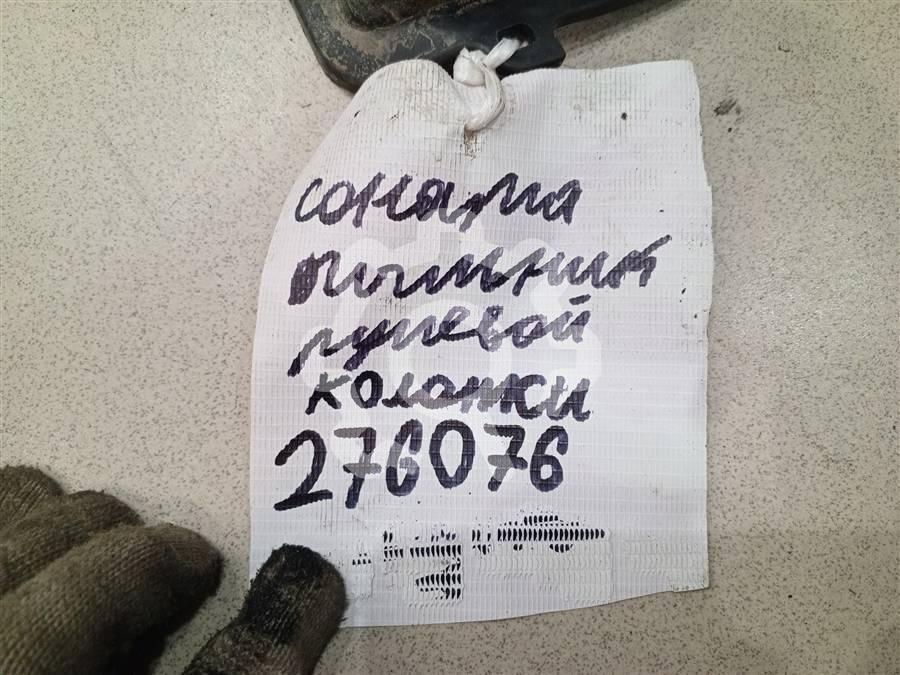 соната
пыльник
рулевой
колонки
276076